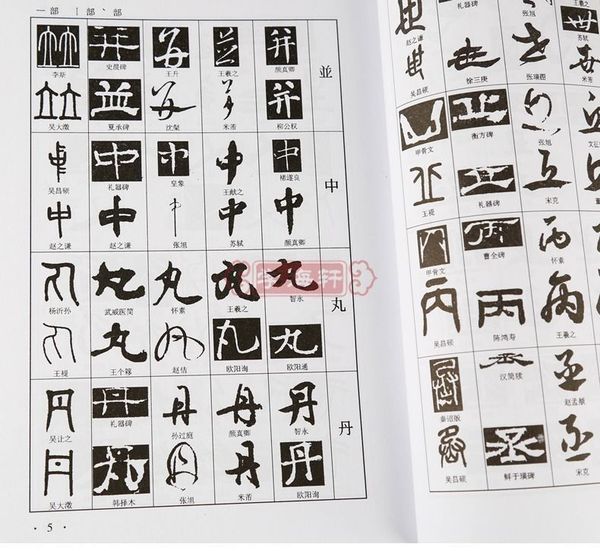 一部 丨部 丶部
並
李斯 史晨碑 王升 王羲之 颜真卿
吴大澂 夏承碑 沈粲 米芾 柳公权
中
吴昌硕 礼器碑 皇象 王献之 褚遂良
赵之谦 赵之谦 张旭 苏轼 颜真卿
丸
杨沂孙 武威医简 怀素 王羲之 智永
王禔 王个簃 赵佶 欧阳询 欧阳通
丹
吴让之 礼器碑 孙过庭 颜真卿 智永
吴大澂 韩择木 张旭 米芾 欧阳询
· 5 ·
赵之谦
苏轼
吴昌硕 徐三庚 张瑞图 米芾
甲骨文 衡方碑 张旭
王禔 礼器碑 宋克
甲骨文 曹全碑 怀素
吴昌硕 陈鸿寿 王羲之
秦诏版 汉简牍 赵孟頫
吴昌硕 鲜于璜碑 宋克